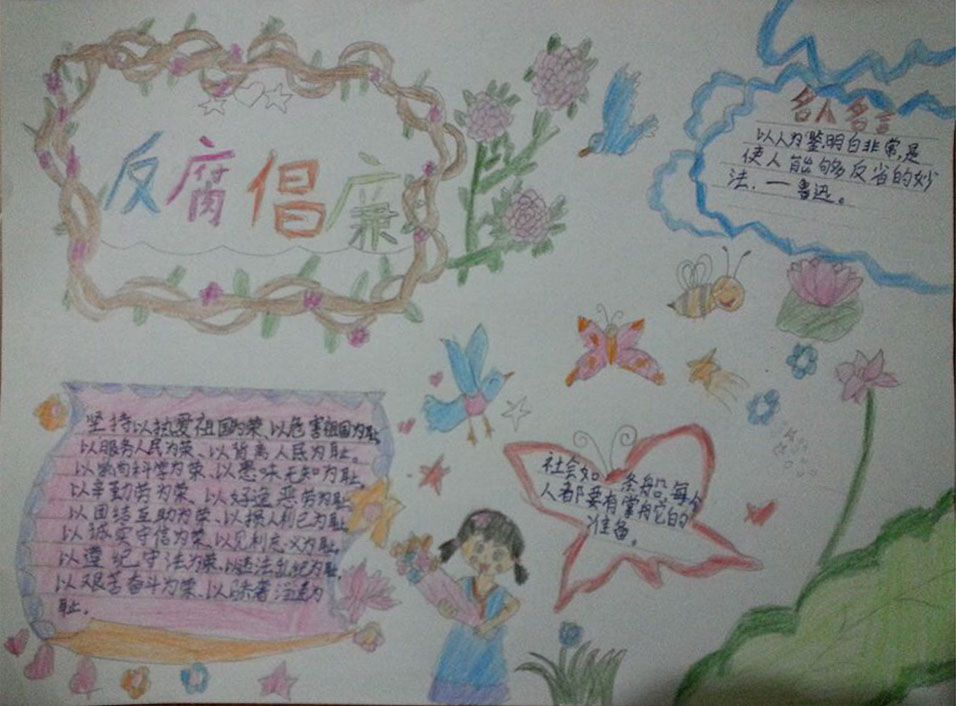 反腐倡廉
名人名言
以人为鉴,明白非常,是
使人能够反省的妙
法.一鲁迅。
坚持以热爱祖国为荣、以危害祖国为耻
以服务人民为荣、以背离人民为耻。
以崇尚科学为荣、以愚昧无知为耻。
以辛勤劳为荣、以好逸恶劳为耻
以团结互助为荣、以损人利己为耻
以诚实守信为荣、以见利忘义为耻。
以遵纪守法为荣、以违法乱纪为耻,
以艰苦奋斗为荣、以骄奢淫逸为
耻。
社会如一条船,每个
人都要有掌舵的
准备。